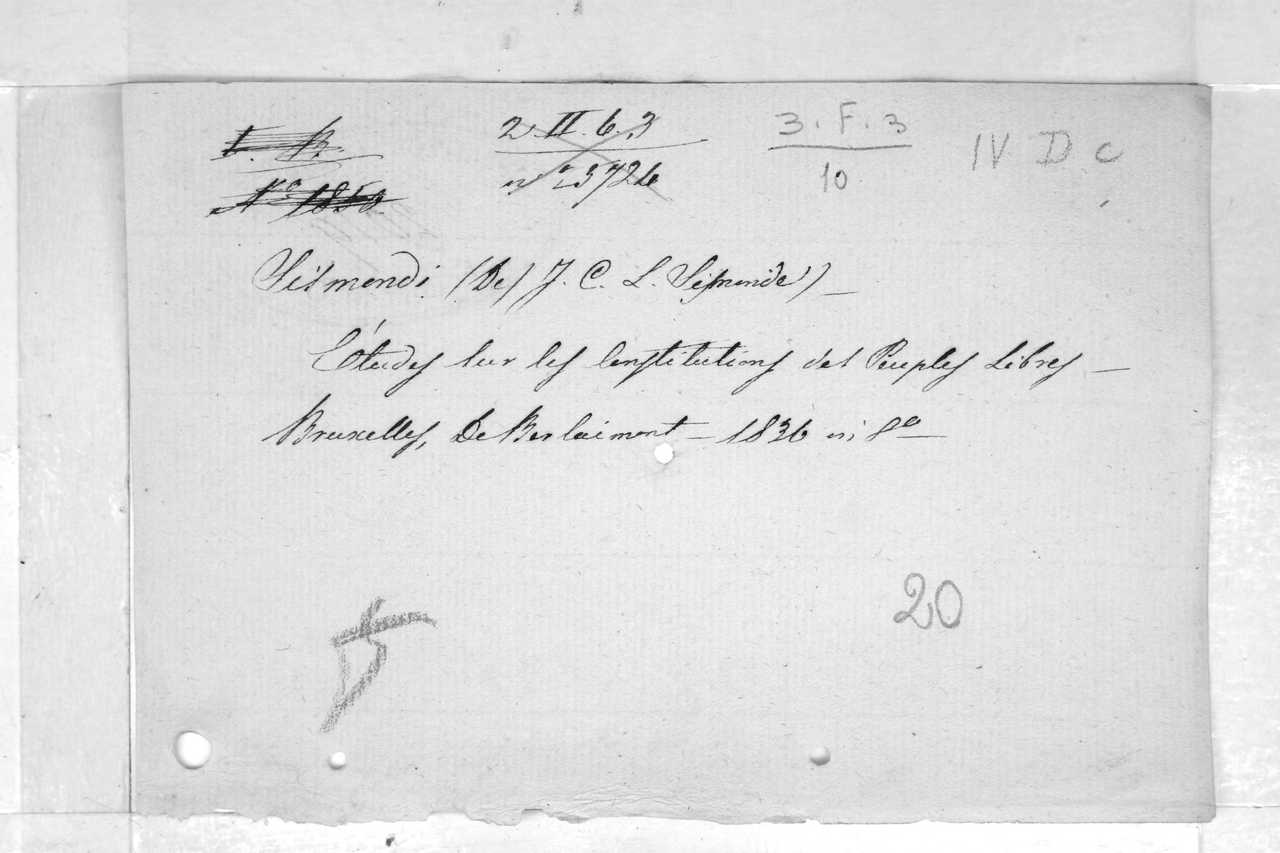 t. B. 2. III. 6. 3 3. F. 3 IV D c
Nº 1850 nº 23726 10
Sismondi (De) J. C. L. Sismonde) —
Études sur les Constitutions des Peuples Libres —
Bruxelles, De Berlaimont — 1836 in 8º —
20